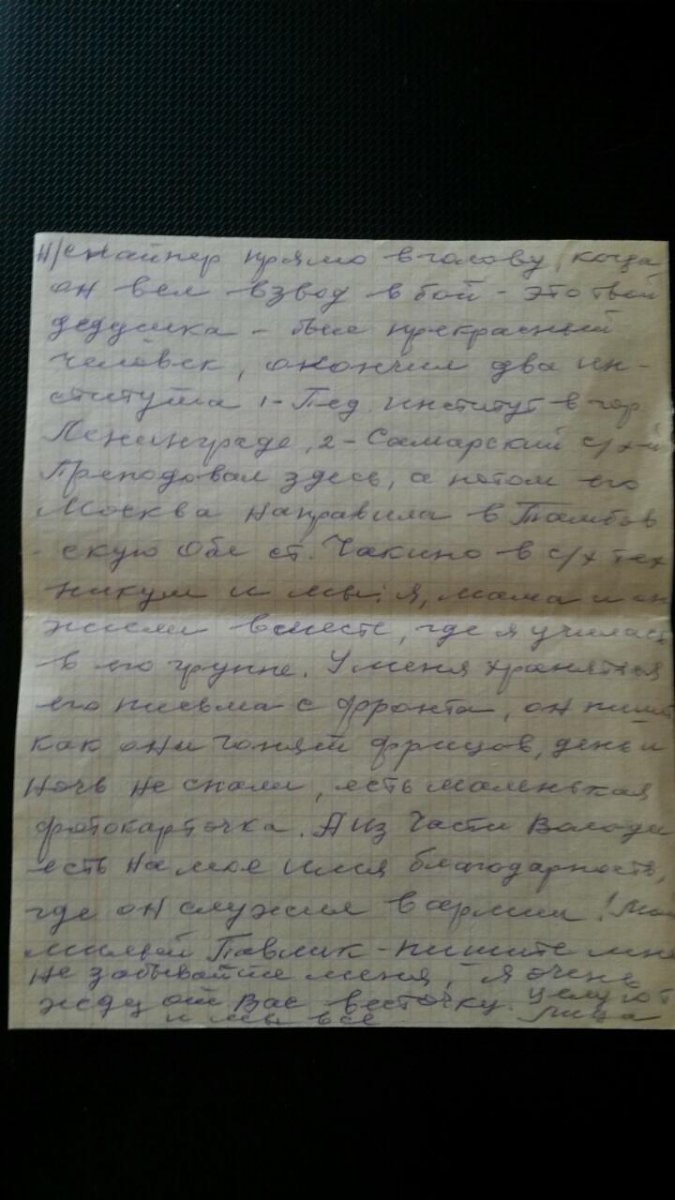 снайпер прямо в голову, когда
он вел взвод в бой - это твой
дедушка - был прекрасный
человек, окончил два ин-
ститута 1 - Пед. институт в гор.
Ленинграде, 2 - Самарский с/х-й
Преподовал здесь, а потом его
Москва направила в Тамбов
- скую Обл ст. Чакино в с/х тех
никум и мы: я, мама и он
жили вместе, где я училась
в его группе. У меня хранятся
его письма с фронта, он пишет
как они гоняли фрицов, день и
ночь не спали, есть маленькая
фотокарточка. А из части Володи
есть на мое имя благодарность,
где он служил в армии! Мой
милый Павлик - пишите мне
не забывайте меня, - я очень
жду от Вас весточку. Целую
и мы все